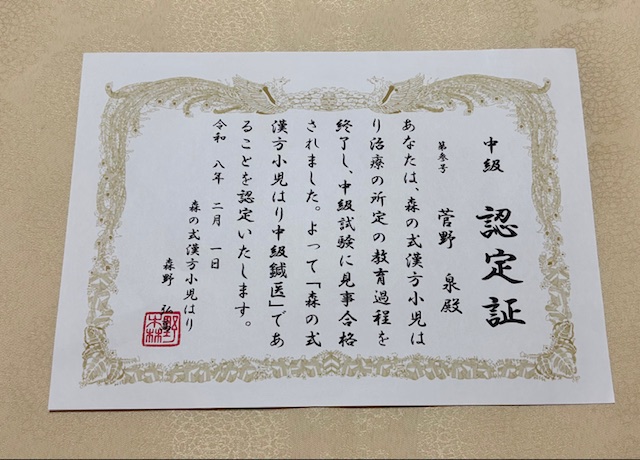 中級 認定証
第参号 菅野 泉殿
あなたは、森の式漢方小児は
り治療の所定の教育過程を
終了し、中級試験に見事合格
されました。よって「森の式
漢方小児はり中級鍼医」であ
ることを認定いたします。
令和 八年 二月 一日
森の式漢方小児はり
森野 弘
森野